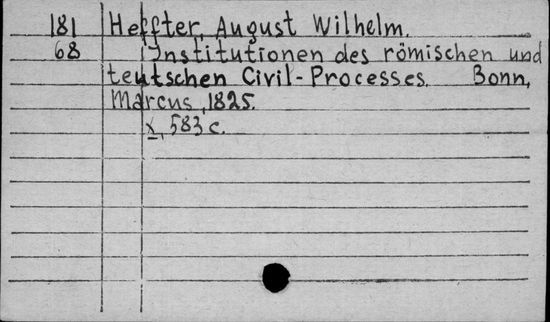 181 Heffter, August Wilhelm.
68 Institutionen des römischen und
teutschen Civil-Processes. Bonn,
Marcus, 1825.
X, 583 c.